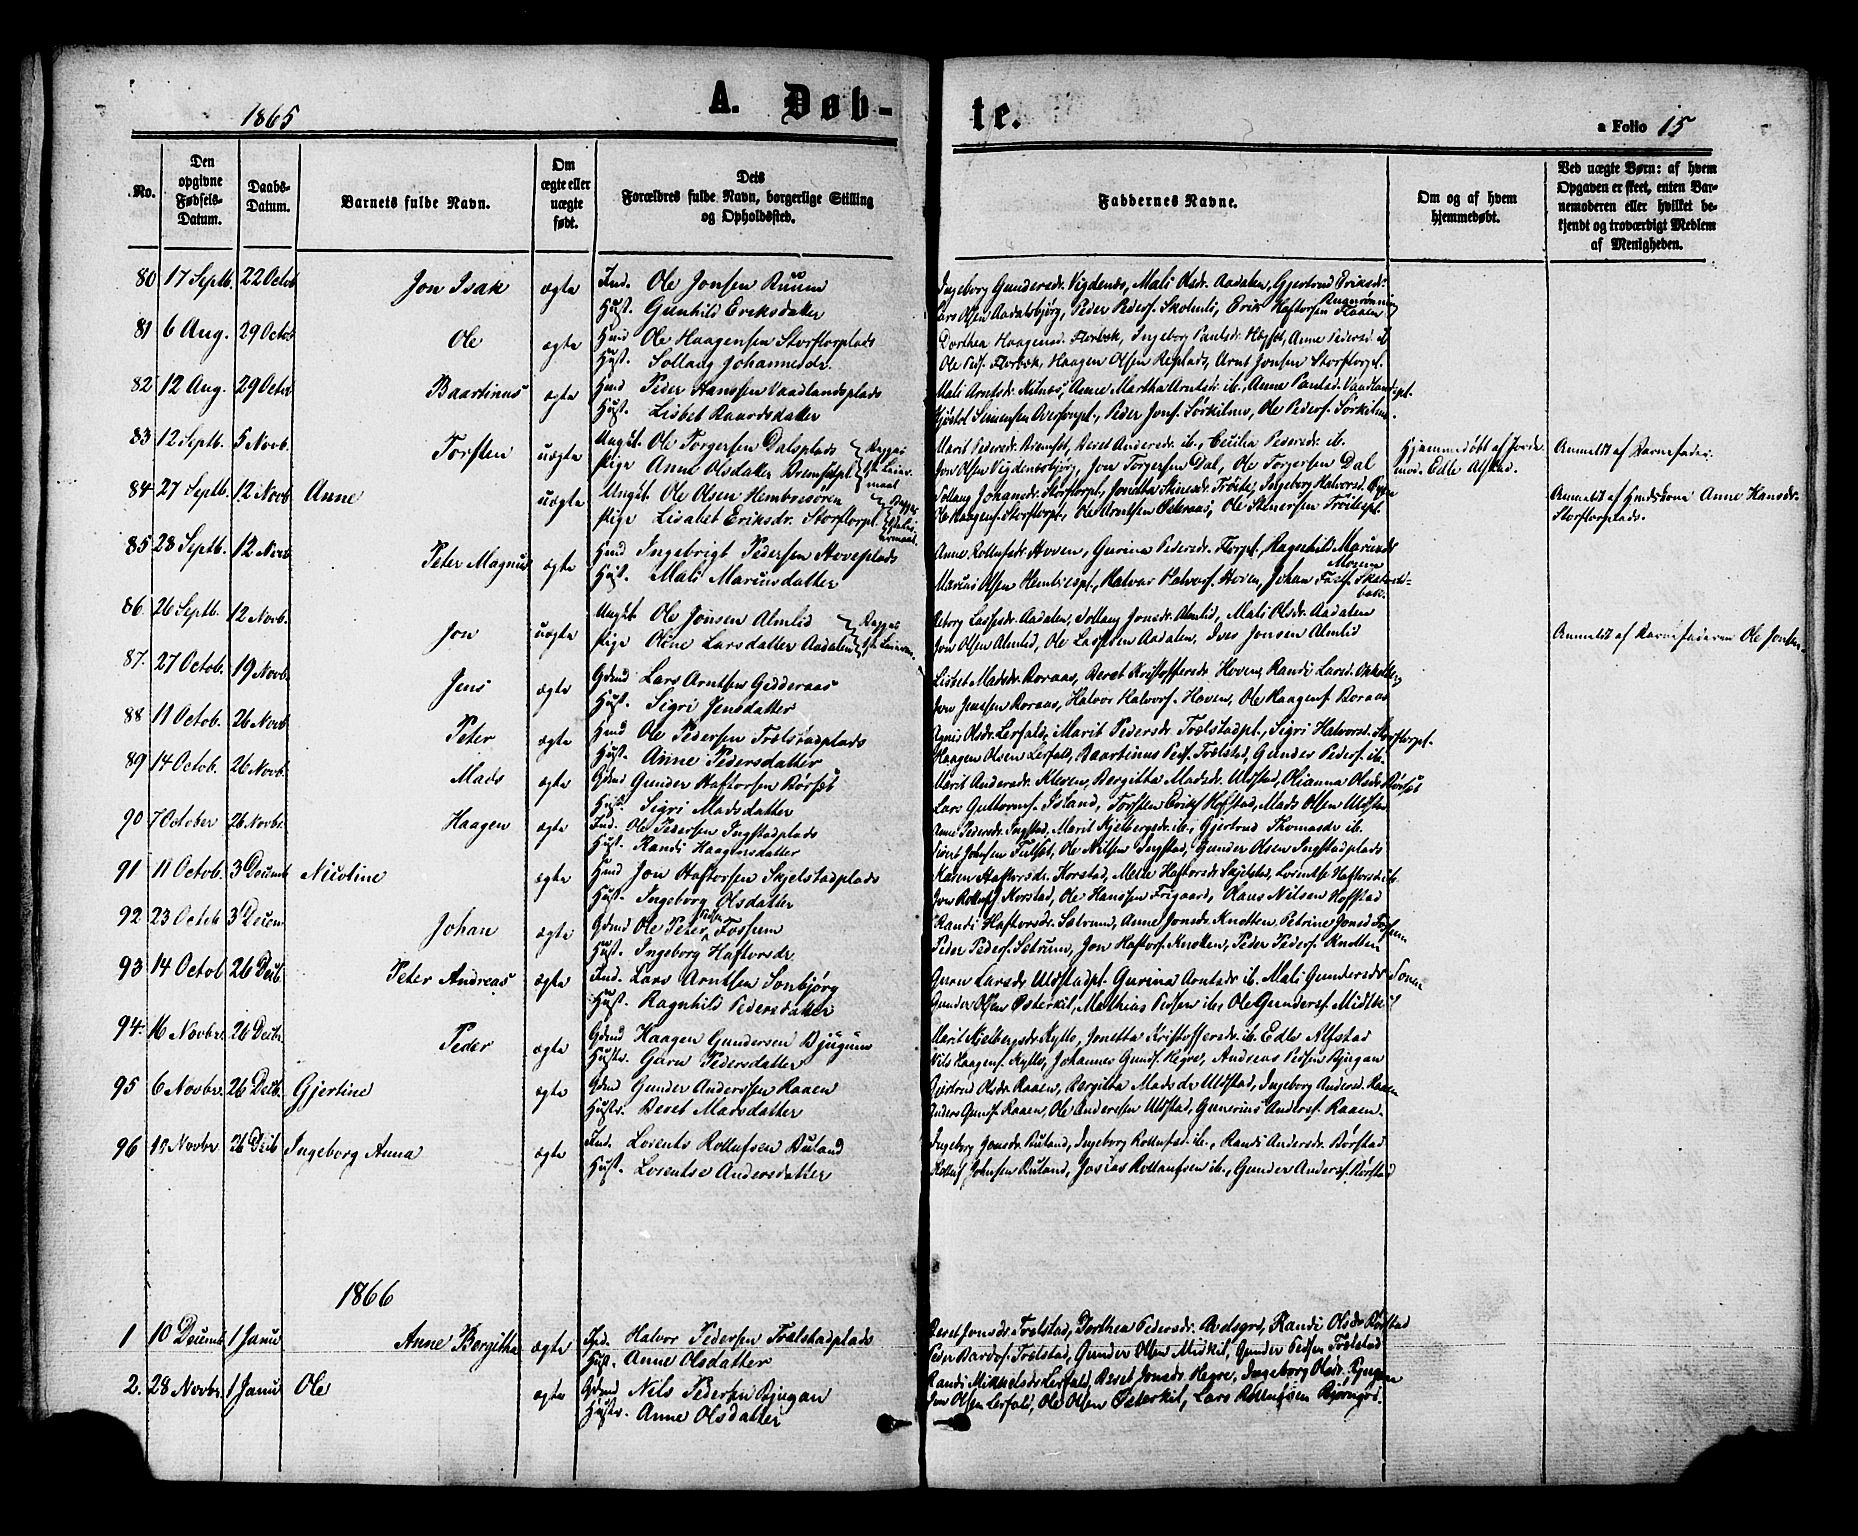 1865
A. Døb-
te.
a Folio 15
No.
Den opgivne Fødsels-Datum.
Daabs-Datum.
Barnets fulde Navn.
Om ægte eller uægte født.
Dets Forældres fulde Navn, borgerlige Stilling og Opholdssted.
Faddernes Navne.
Om og af hvem hjemmedøbt.
Ved uægte Børn: af hvem Opgaven er skeet, enten Barnemoderen eller hvilket bekjendt og troværdigt Medlem af Menigheden.
80 17 Septb. 22 Octob Jon Isak ægte Ind. Ole Jonsen Ruum
Hust. Gunhild Eriksdatter
Ingeborg Gundersdr. Vigdenes, Mali Olsdr. Aadalen, Gjertrud Eriksdr.
Lars Olsen Aadalsbjørg, Peder Peders. Skolmli, Erik Haftorsen Flaaen
81 6 Aug. 29 Octob Ole ægte Hmd Ole Haagensen Storflorplads
Hust. Sollaug Johannesdr.
Dorthea Haagensd. Florbak, Ingeborg Paulsdr. Høgset, Anne Pedersd. ib
Ole Peds. Florbak, Haagen Olsen Replads, Arnt Jonsen Storflorpl.
82 12 Aug. 29 Octbr Baartinus ægte Hmd Peder Hanssen Vaadlandsplads
Hust. Lisbet Baardsdatter
Mali Arntsdr. Milnes, Anne Martha Arntsdr. ib., Anne Paulsd. Vaadlandspl.
Peder Jons. Sørkilmo, Ole Peders. Sørkilmo.
83 12 Septb. 5 Novb. Torsten uægte Ungk. Ole Torgersen Dalsplads
Pige Anne Olsdatter Bremsetpl. Begges 1ste Leiermaal
Marit Pedersdr. Bremset, Beret Andersdr. ib., Cecilia Pedersdr. ib.
Jon Olsen Vigdenesbjørg, Jon Torgersen Dal, Ole Torgersen Dal
Hjemmedøbt af Jordemod. Edle Alstad.
Anmeldt af Barnefader.
84 27 Septb. 12 Novb Anne uægte Ungk. Ole Olsen Hembresøren
Pige Lisabet Eriksdr. Storflorpl.
Sollaug Johansdr. Storflorpl., Jonetta Steinersdr. Trøite, Ingeborg Halvorsd. Bygga
Ole Haagens. Storflorpl., Ole Arntsen Østeraas, Ole Steinersen Trøitespl.
Anmeldt af Huuskone Anne Hansdr. Storflorplads.
85 23 Septb. 12 Novb Peter Magnus ægte Hmd Ingebrigt Pedersen Hoveplads
Hust. Mali Mariusdatter
Anne Rollufsdr. Hoven, Gurina Pedersdr. Florpl., Ragnhild Mariusdr Moum
Marius Olsen Hembrespl., Halvor Halvors. Hoven, Johan
86 26 Septb. 12 Novb. Jon uægte Ungk. Ole Jonsen Almlid
Pige Olne Larsdatter Aadalen Begges 1ste Leierm.
Lassesdr. Aadalen, Sollaug Jonsdr. Almlid, Mali Olsdr. Aadalen
Jon Olsen Almlid, Ole Lassesen Aadalen, Iver Jonsen Almlid
Anmeldt af Barnefaderen Ole Jonsen.
87. 27 Octob. 19 Novb. Jens ægte Gdmd Lars Arntsen Gidderaas
Hust. Sigri Jensdatter
Lisbet Madsdr. Roraas, Beret Kristoffersdr. Hoven, Randi Larsd.
Jon Jensen Roraas, Halvor Halvors. Hoven, Ole Haagens. Roraas
88 11 Octob. 26 Novb. Peter ægte Hmd Ole Pedersen Trælstadplads
Hust. Anne Pedersdatter
Agnis Olsdr. Lerfald, Marit Pedersdr. Trælstadpl., Sigri Halvorsd. Storflorpl.
Haagen Olsen Lerfald, Baartinus Peds. Trælstad, Gunder Peders. ib.
89 14 Octob. 26 Novb. Mads ægte Gdmd Gunder Haftorsen Børset
Hust. Sigri Madsdatter
Marit Andersdr. Kleven, Bergitha Madsdr. Uldstad, Olianna Olsdr. Børset
Lars Guttorms. Island, Torsten Eriks. Hofstad, Mads Olsen Uldstad
90 7 October 26 Novbr. Haagen ægte Ind. Ole Pedersen Ingstadplads
Hust. Randi Haagensdatter
Anne Pedersdr. Ingstad, Marit Kjelbergsdr. ib., Gjertrud Thomasdr. ib.
Sivert Johnsen Fulset, Ole Nilsen Ingstad, Gunder Olsen Ingstadplads
91 11 Octob. 3 Decemb. Nicoline ægte Hmd Jon Haftorsen Skjelstadplads
Hust. Ingeborg Olsdatter
Karen Haftorsdr. Korstad, Meta Haftorsdr. Skjelstad, Lorentse Haftorsd. ib.
Jon Rollufs. Korstad, Ole Hanssen Frigaard, Claus Nilsen Hoffstad
92 23 Octob 3 Decem Johan ægte Gdmd Ole Peter Peders. Fossum
Hust. Ingeborg Haftorsdr.
Randi Haftorsdr. Sætrum, Anne Jonsdr. Knotten, Petrine Jonsd. Fossum
Peder Peders. Sætrum, Jon Haftors. Knotten, Peder Peders. Knotten
93 14 Octob 26 Decb. Peter Andreas ægte Ind. Lars Arntsen Sonbjørg
Hust. Ragnhild Pedersdatter
Guru Larsdr. Uldstadpl. Gurina Arntsdr. ib. Mali Gundersdr.
Gunder Olsen Østerkil, Matthias Pedsen ib., Ole Gunders. Midtkil
94. 16 Novbr. 26 Decbr. Peder ægte Gdmd Haagen Gundersen Bjugum
Hustr. Guru Pedersdatter
Marit Kjelbergsdr. Kyllo, Jonetta Kristoffersdr. ib. Edle Alstad
Nils Haagens. Kyllo, Johannes Gunds. Hegre, Andreas Pedsen Bjugan
95 6 Novbr. 26 Decb. Gjertine ægte Gdmd Gunder Anderssen Raaen
Hustr. Beret Madsdatter
Gjertrud Olsdr. Raaen, Bergitha Madsdr Uldstad, Ingeborg Andersd. Raaen
Anders Guns. Raaen, Ole Anderssen Uldstad, Gunerius Anders. Raaen.
96 10 Novbr 26 Decb Ingeborg Anna ægte Ind. Lorents Rollufsen Buland
Hust. Lorentse Andersdatter
Ingeborg Jonsdr. Buland, Ingeborg Rollufsd. ib., Randi Andersdr. Børstad
Rolluf Johnsen Buland, Josias Rollaufsen ib., Gunder Anders. Børstad
1866
1 10 Decemb 1 Janu Anne Bergitha ægte Ind. Halvor Pedersen Trælstadplads
Hust. Anne Olsdatter
Beret Jonsdr. Trælstad, Dorthea Pedersdr. Avelsgr., Randi Olsdr Børstad
Peder Bardos. Trælstad, Gunder Olsen Midkil, Gunder Pedsen Trælstad
2. 28 Novbr. 1 Janu Ole ægte Gdmd Nils Pedersen Bjugan
Hustr. Anne Olsdatter
Randi Mikkelsdr Lerfald, Beret Jonsdr. Hegre, Ingeborg Olsdr. Bjugan
Jon Olsen Lerfald, Ole Olsen Østerkil, Lars Rollufsen Bjørngos.